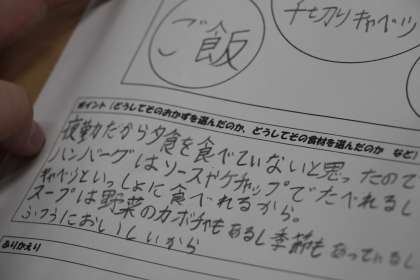 ご飯
千切りキャベツ
ポイント（どうしてそのおかずを選んだのか、どうしてその食材を選んだのか など）
夜勤だから夕食を食べていないと思ったので
ハンバーグはソースやケチャップでたべれるし
キャベツといっしょに食べれるから。
スープは野菜のカボチャもあるし季節もあっているし
ふつうにおいしいから
ふりかえり